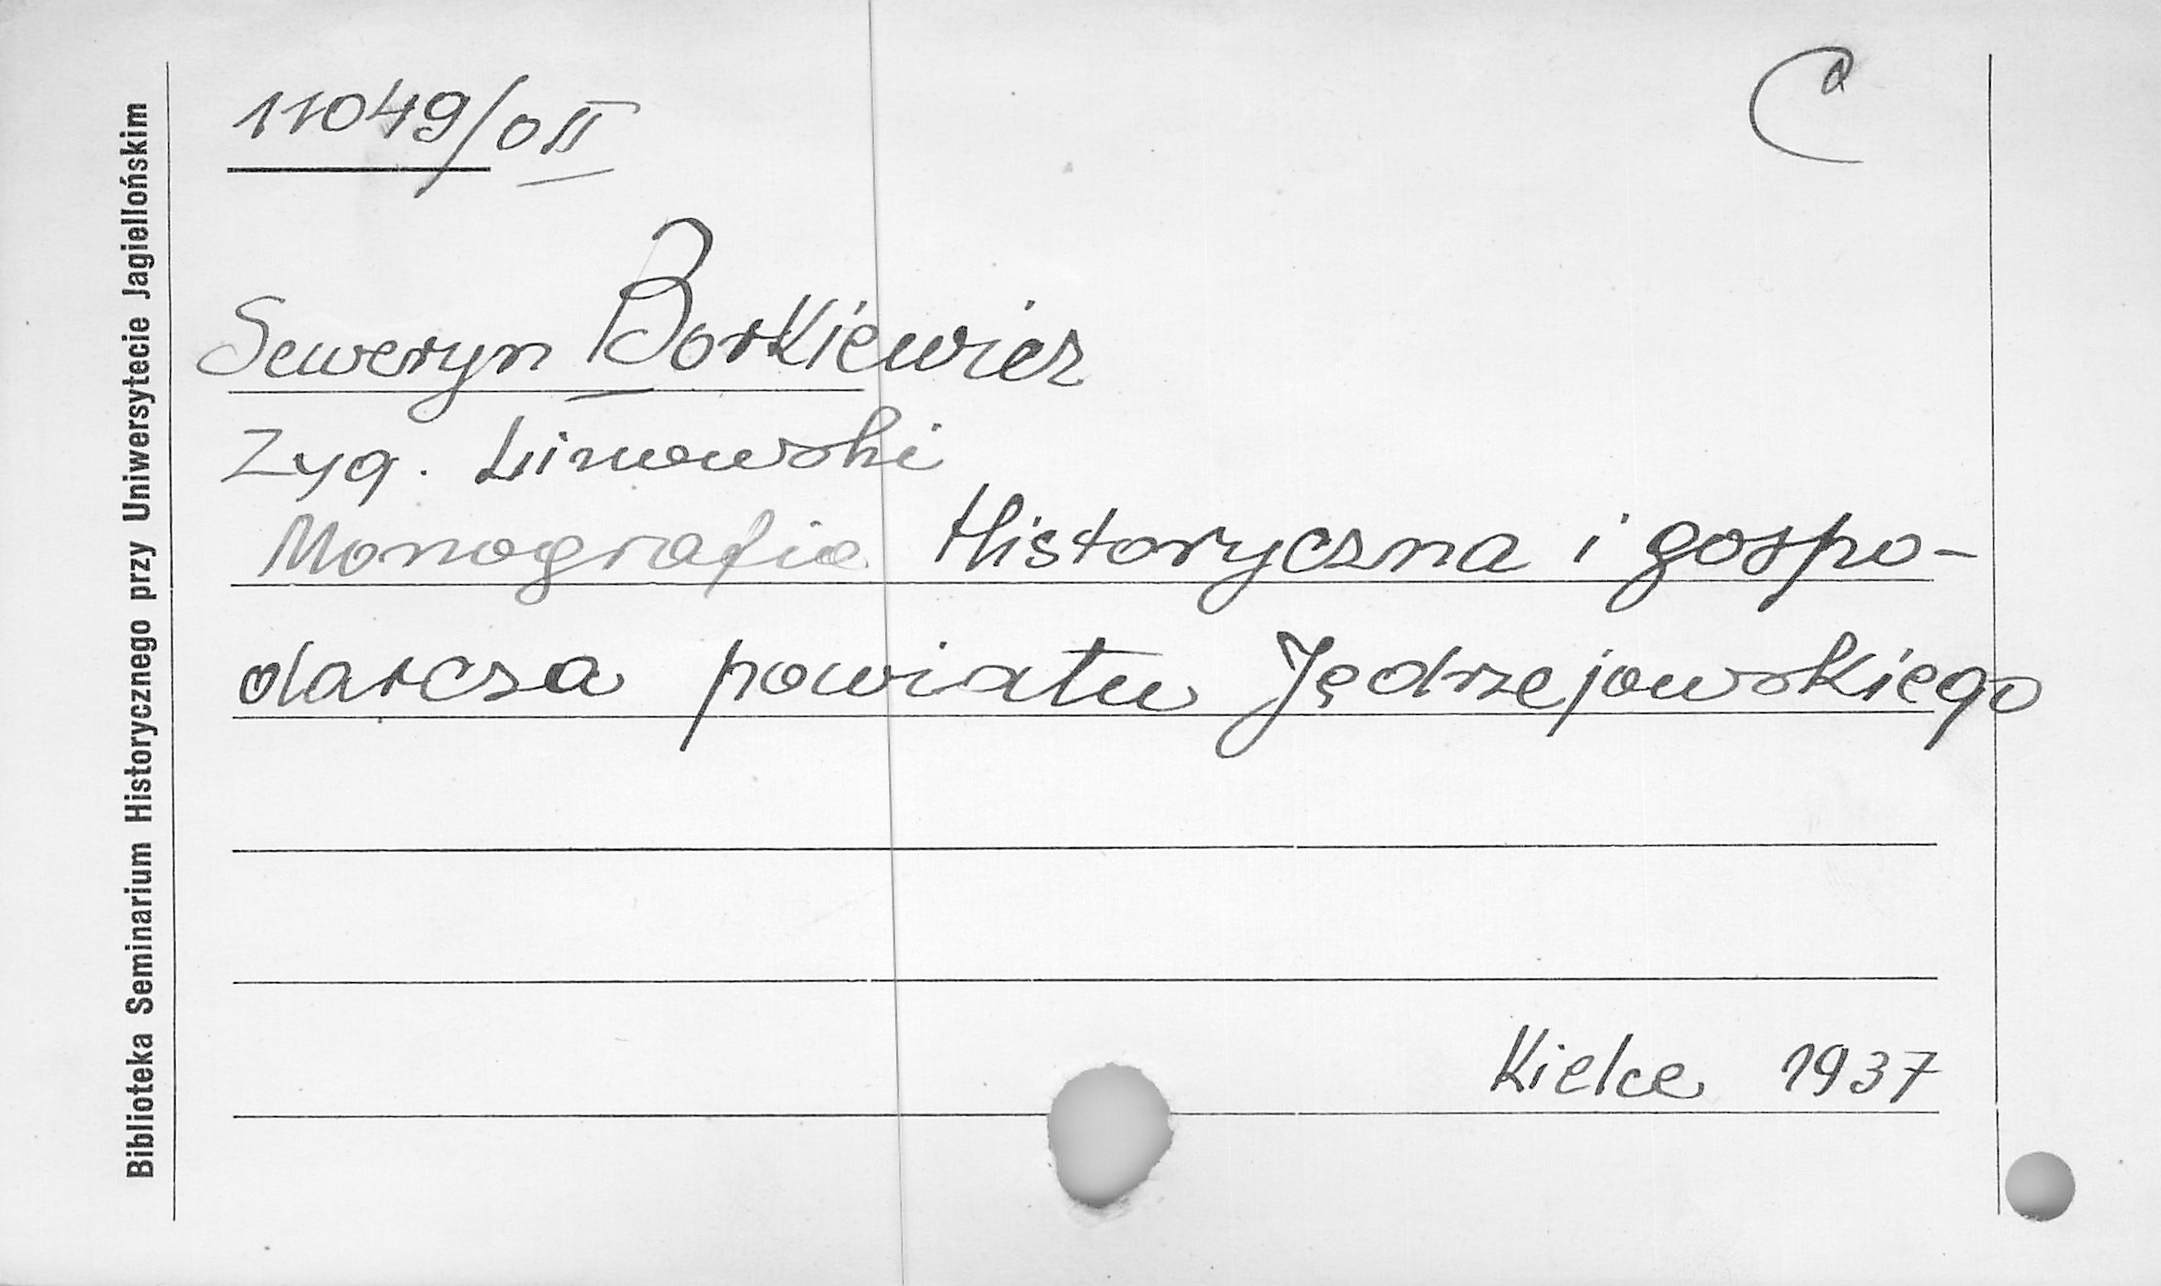 11049/0II
C
Seweryn Borkiewicz
Zyg. Linowski
Monografia Historyczna i gospo-
darcza powiatu Jędrzejowskiego
Kielce 1937
Biblioteka Seminarium Historycznego przy Uniwersytecie Jagiellońskim